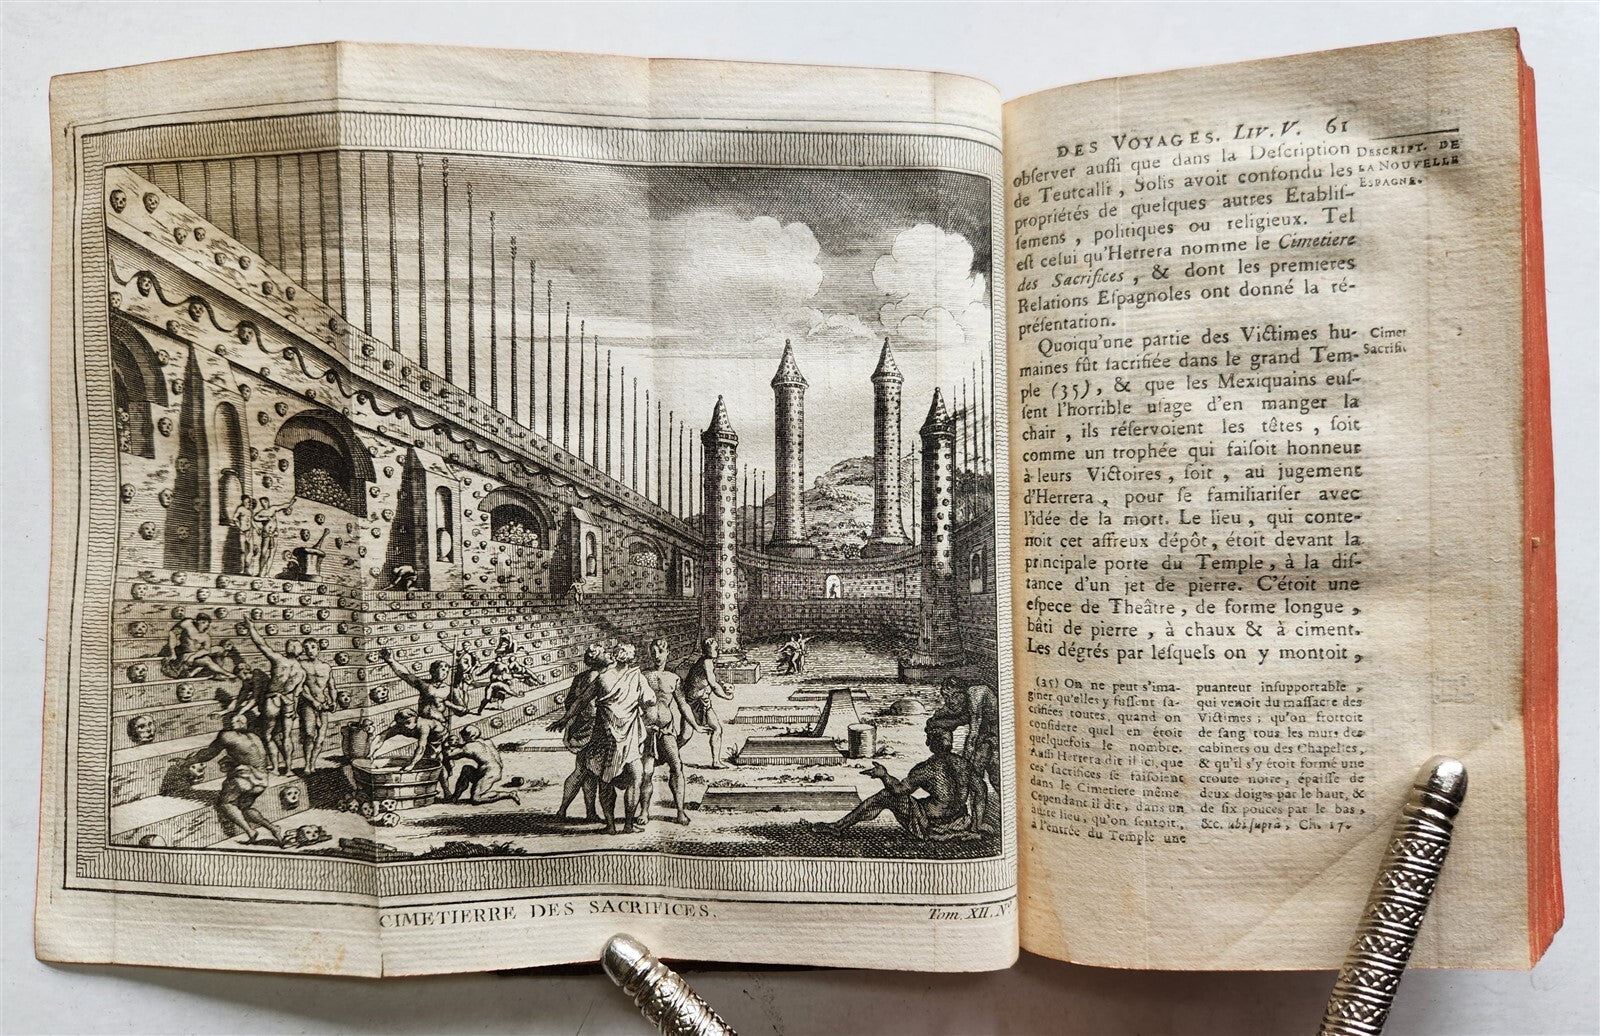 CIMETIERRE DES SACRIFICES.
Tom. XII. N.º
DES VOYAGES. LIV. V. 61
obſerver auſſi que dans la Deſcription
de Teutcalli, Solis avoit confondu les
propriétés de quelques autres Etabliſ-
ſemens, politiques ou religieux. Tel
eſt celui qu'Herrera nomme le Cimetiere
des Sacrifices, & dont les premieres
Relations Eſpagnoles ont donné la ré-
préſentation.
DESCRIPT. DE
LA NOUVELLE
ESPAGNE.
Quoiqu'une partie des Victimes hu-
maines fût ſacrifiée dans le grand Tem-
ple (35), & que les Mexiquains euſ-
ſent l'horrible uſage d'en manger la
chair, ils réſervoient les têtes, ſoit
comme un trophée qui faiſoit honneur
à leurs Victoires, ſoit, au jugement
d'Herrera, pour ſe familiariſer avec
l'idée de la mort. Le lieu, qui conte-
noit cet affreux dépôt, étoit devant la
principale porte du Temple, à la diſ-
tance d'un jet de pierre. C'étoit une
eſpece de Theâtre, de forme longue,
bâti de pierre, à chaux & à ciment.
Les dégrés par leſquels on y montoit,
Cimet
Sacrifi
(35) On ne peut s'ima-
giner qu'elles y fuſſent ſa-
crifiées toutes, quand on
conſidere quel en étoit
quelquefois le nombre.
Auſſi Herrera dit il ici, que
ces ſacrifices ſe faiſoient
dans le Cimetiere même
Cependant il dit, dans un
autre lieu, qu'on ſentoit,
à l'entrée du Temple une
puanteur inſupportable,
qui venoit du maſſacre des
Victimes; qu'on frottoit
de ſang tous les murs des
cabinets ou des Chapelles,
& qu'il s'y étoit formé une
croute noire, épaiſſe de
deux doigts par le haut, &
de ſix pouces par le bas,
&c. ubi ſuprà, Ch. 17.